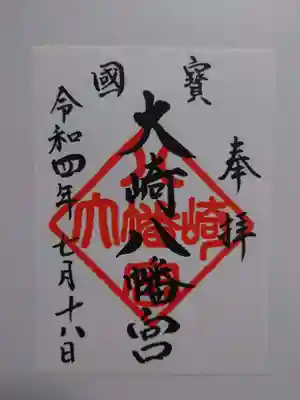 奉拝
國寶
大崎八幡宮
大崎八幡宮
令和四年七月十八日